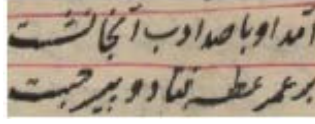 آمد او با صد ادب آنجا نشست
بر عمر عطسه فتاد و پیر جست